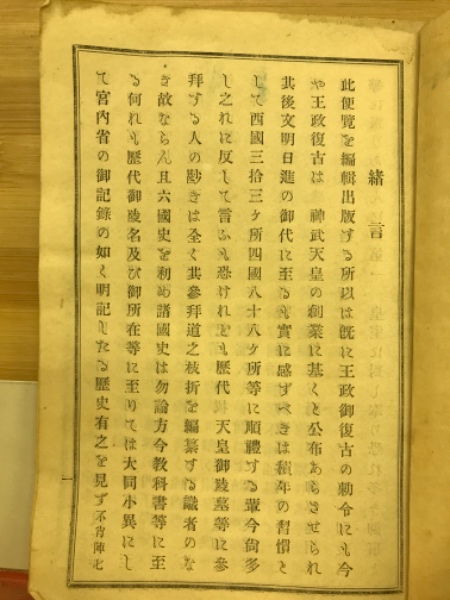 緒言
此便覽を編輯出版する所以は既に王政御復古の勅令にも今
や王政復古は 神武天皇の創業に基くと公布あらさせられ
其後文明日進の御代に至るも實に感ずべきは積年の習慣と
して西國三拾三ヶ所四國八十八ヶ所等に順禮する輩今尙多
し之れに反して言ふも恐けれども歷代 天皇御陵墓等に參
拜する人の尠きは全く其參拜道之枝折を編纂する識者のな
き故ならん且六國史を初め諸國史は勿論方今教科書等に至
る何れも歷代御陵名及び御所在等に至りては大同小異にし
て宮內省の御記錄の如く明記したる歷史有之を見ず不肖陣七
一